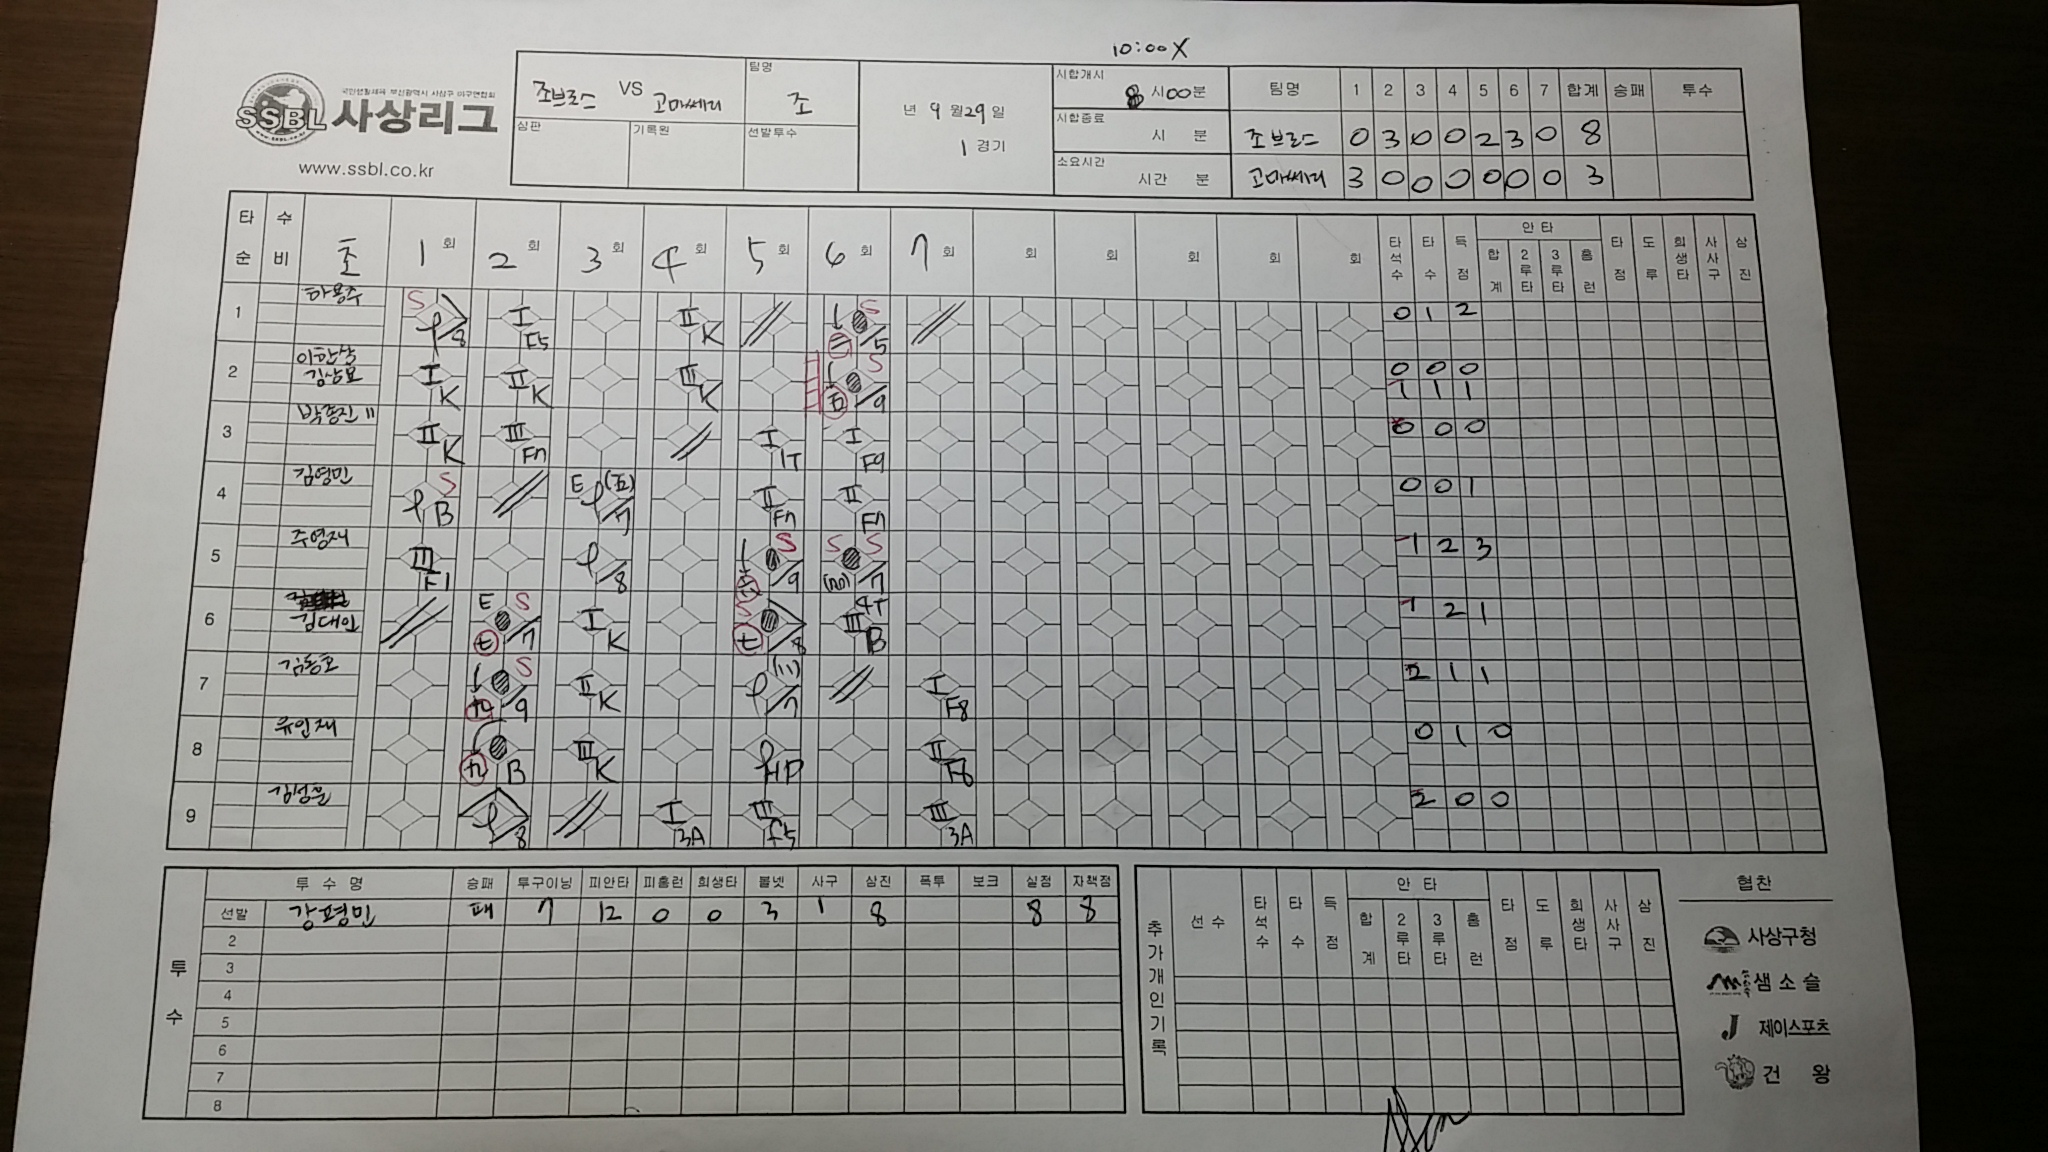 10:00X
국민생활체육 부산광역시 사상구 야구연합회
SSBL 사상리그
www.ssbl.co.kr
조브로스 VS 고마쎄리
팀명
조
심판
기록원
선발투수
년 9 월 29 일
1 경기
시합개시
8 시 00 분
시합종료
시 분
소요시간
시간 분
팀명 1 2 3 4 5 6 7 합계 승패 투수
조브로스 0 3 0 0 2 3 0 8
고마쎄리 3 0 0 0 0 0 0 3
타순 수비 초 1 회 2 회 3 회 4 회 5 회 6 회 7 회 회 회 회 회 회
타석수 타수 득점 안타 합계 2루타 3루타 홈런 타점 도루 희생타 사사구 삼진
1 하용수 S /8 I F5 II K S /5 0 1 2
2 이한상 I K II K III K S /9 0 0 0
김상묘 1 1 1
3 II K III F7 I 1T I F9 0 0 0
4 김영민 S B E /7 II F7 II F7 0 0 1
5 주영재 III F1 /8 S /9 S S /7 1 2 3
6 김대인 E S /7 I K S /8 4T III B 1 2 1
7 김동호 S /9 II K /7 I F8 2 1 1
8 유인재 B III K HP II F8 0 1 0
9 /8 I 3A III F5 III 3A 2 0 0
투수
투수명 승패 투구이닝 피안타 피홈런 희생타 볼넷 사구 삼진 폭투 보크 실점 자책점
선발 강평민 패 7 12 0 0 3 1 8 8 8
2
3
4
5
6
7
8
추가개인기록
선수 타석수 타수 득점 안타 합계 2루타 3루타 홈런 타점 도루 희생타 사사구 삼진
협찬
사상구청
샘소슬
J 제이스포츠
건왕